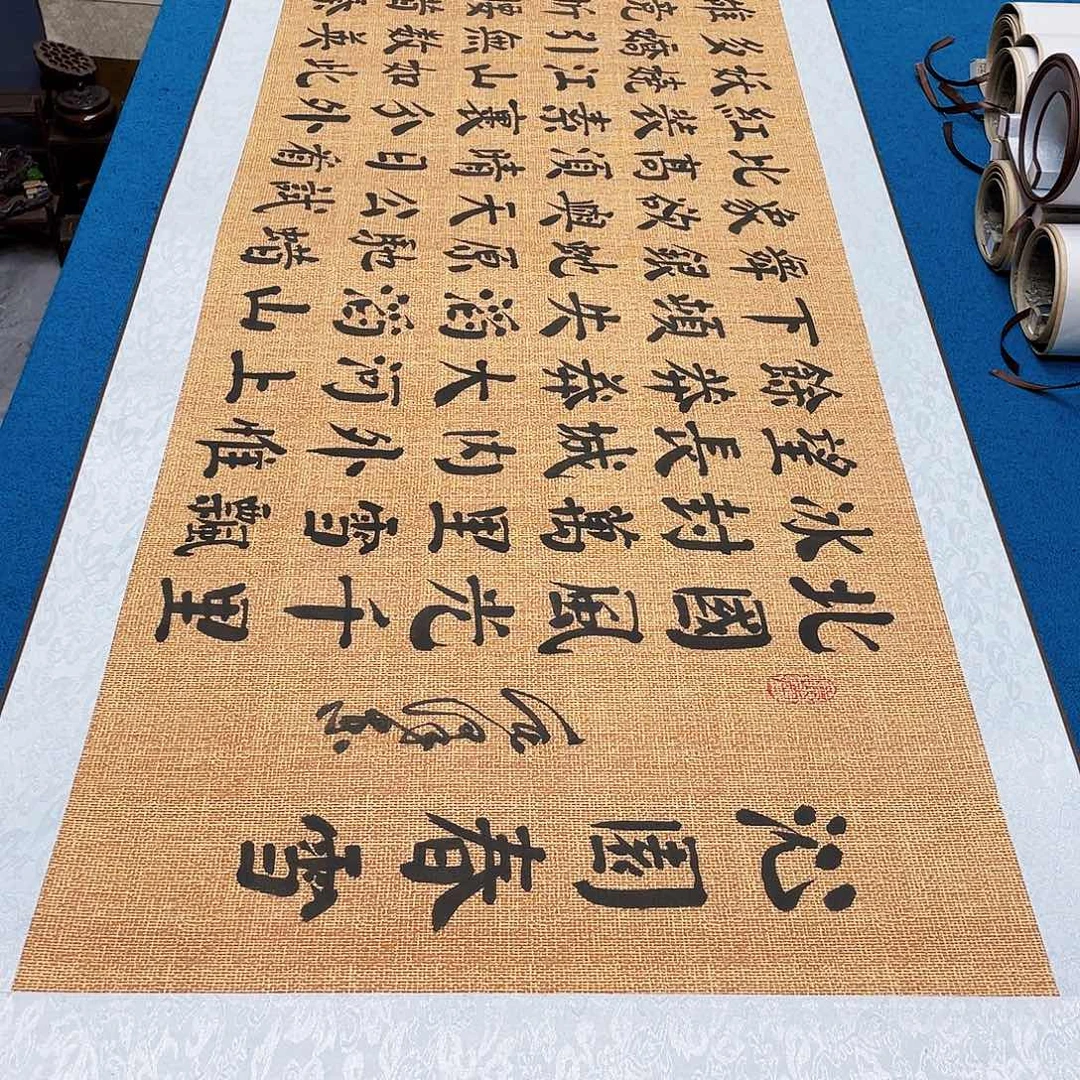 沁園春雪
北國風光千里
冰封萬里雪飄
望長城内外惟
餘莽莽大河上
下頓失滔滔山
舞銀蛇原馳蜡
象欲與天公試
比高須晴日看
紅裝素裹分外
妖嬈江山如此
多嬌引無數英
雄竟折腰惜